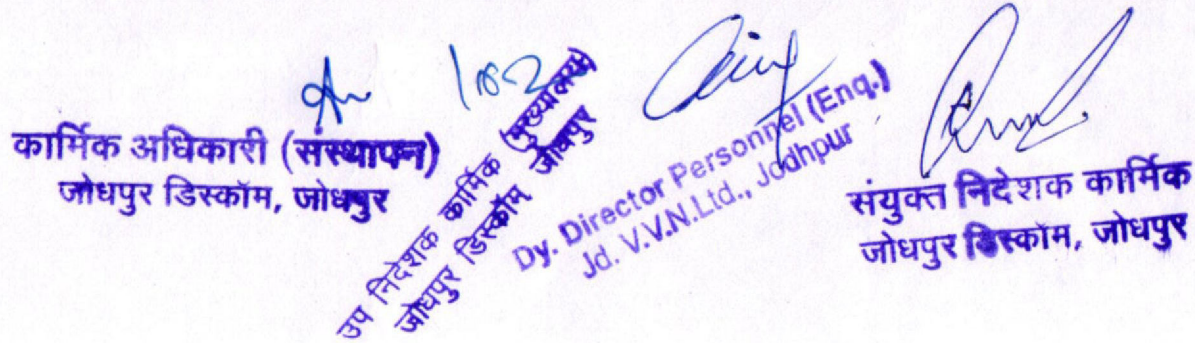 कार्मिक अधिकारी (संस्थापन)
जोधपुर डिस्कॉम, जोधपुर
उप निदेशक कार्मिक (मुख्यालय)
जोधपुर डिस्कॉम जोधपुर
Dy. Director Personnel (Enq.)
Jd. V.V.N.Ltd., Jodhpur
संयुक्त निदेशक कार्मिक
जोधपुर डिस्कॉम, जोधपुर